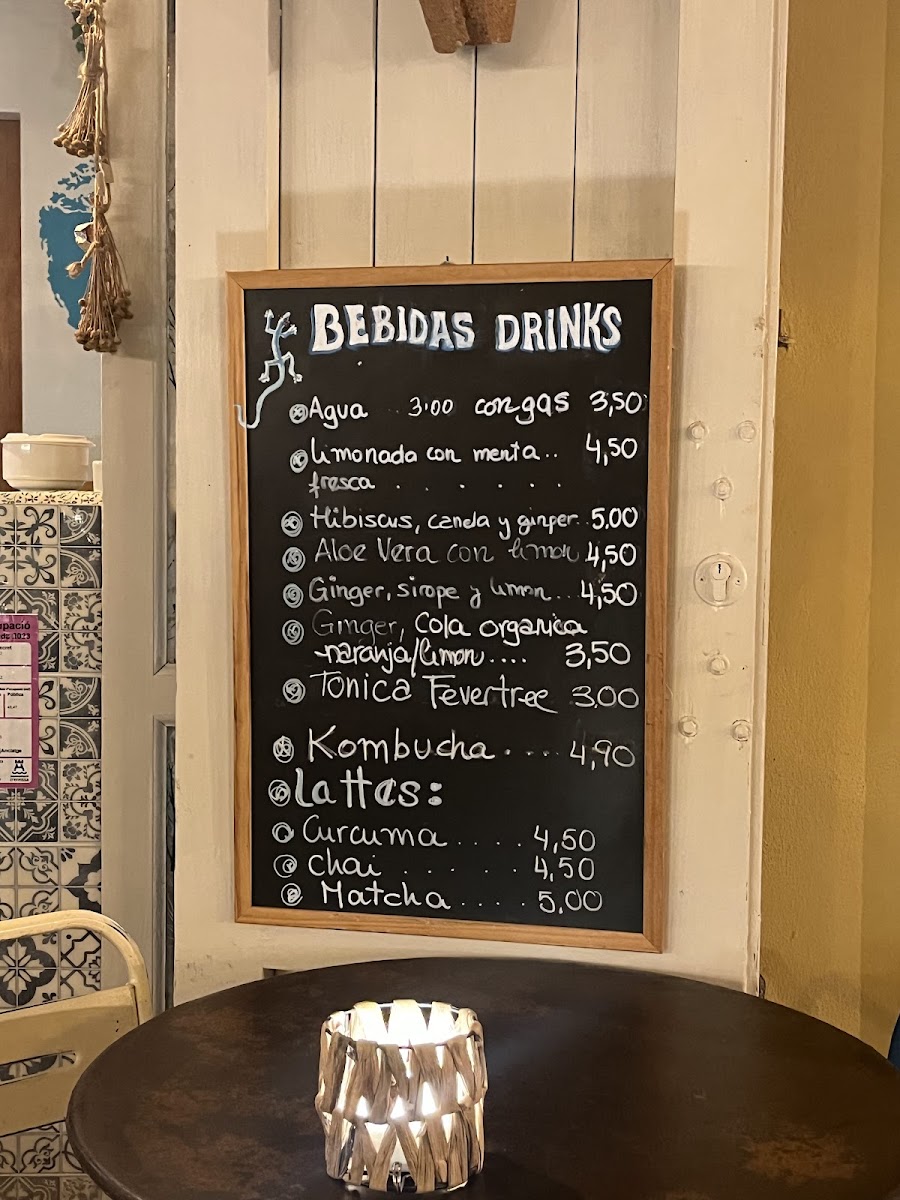 BEBIDAS DRINKS
Agua .. 3.00 con gas 3,50
limonada con menta .. 4,50
fresca . . . . . .
Hibiscus, canela y ginper. 5.00
Aloe Vera con limon 4,50
Ginger, sirope y limon... 4,50
Ginger, Cola organica
naranja/limon.... 3,50
Tonica Fevertree 3.00
Kombucha .... 4,90
Lattes:
Curcuma ..... 4,50
chai ...... 4,50
Matcha ..... 5,00